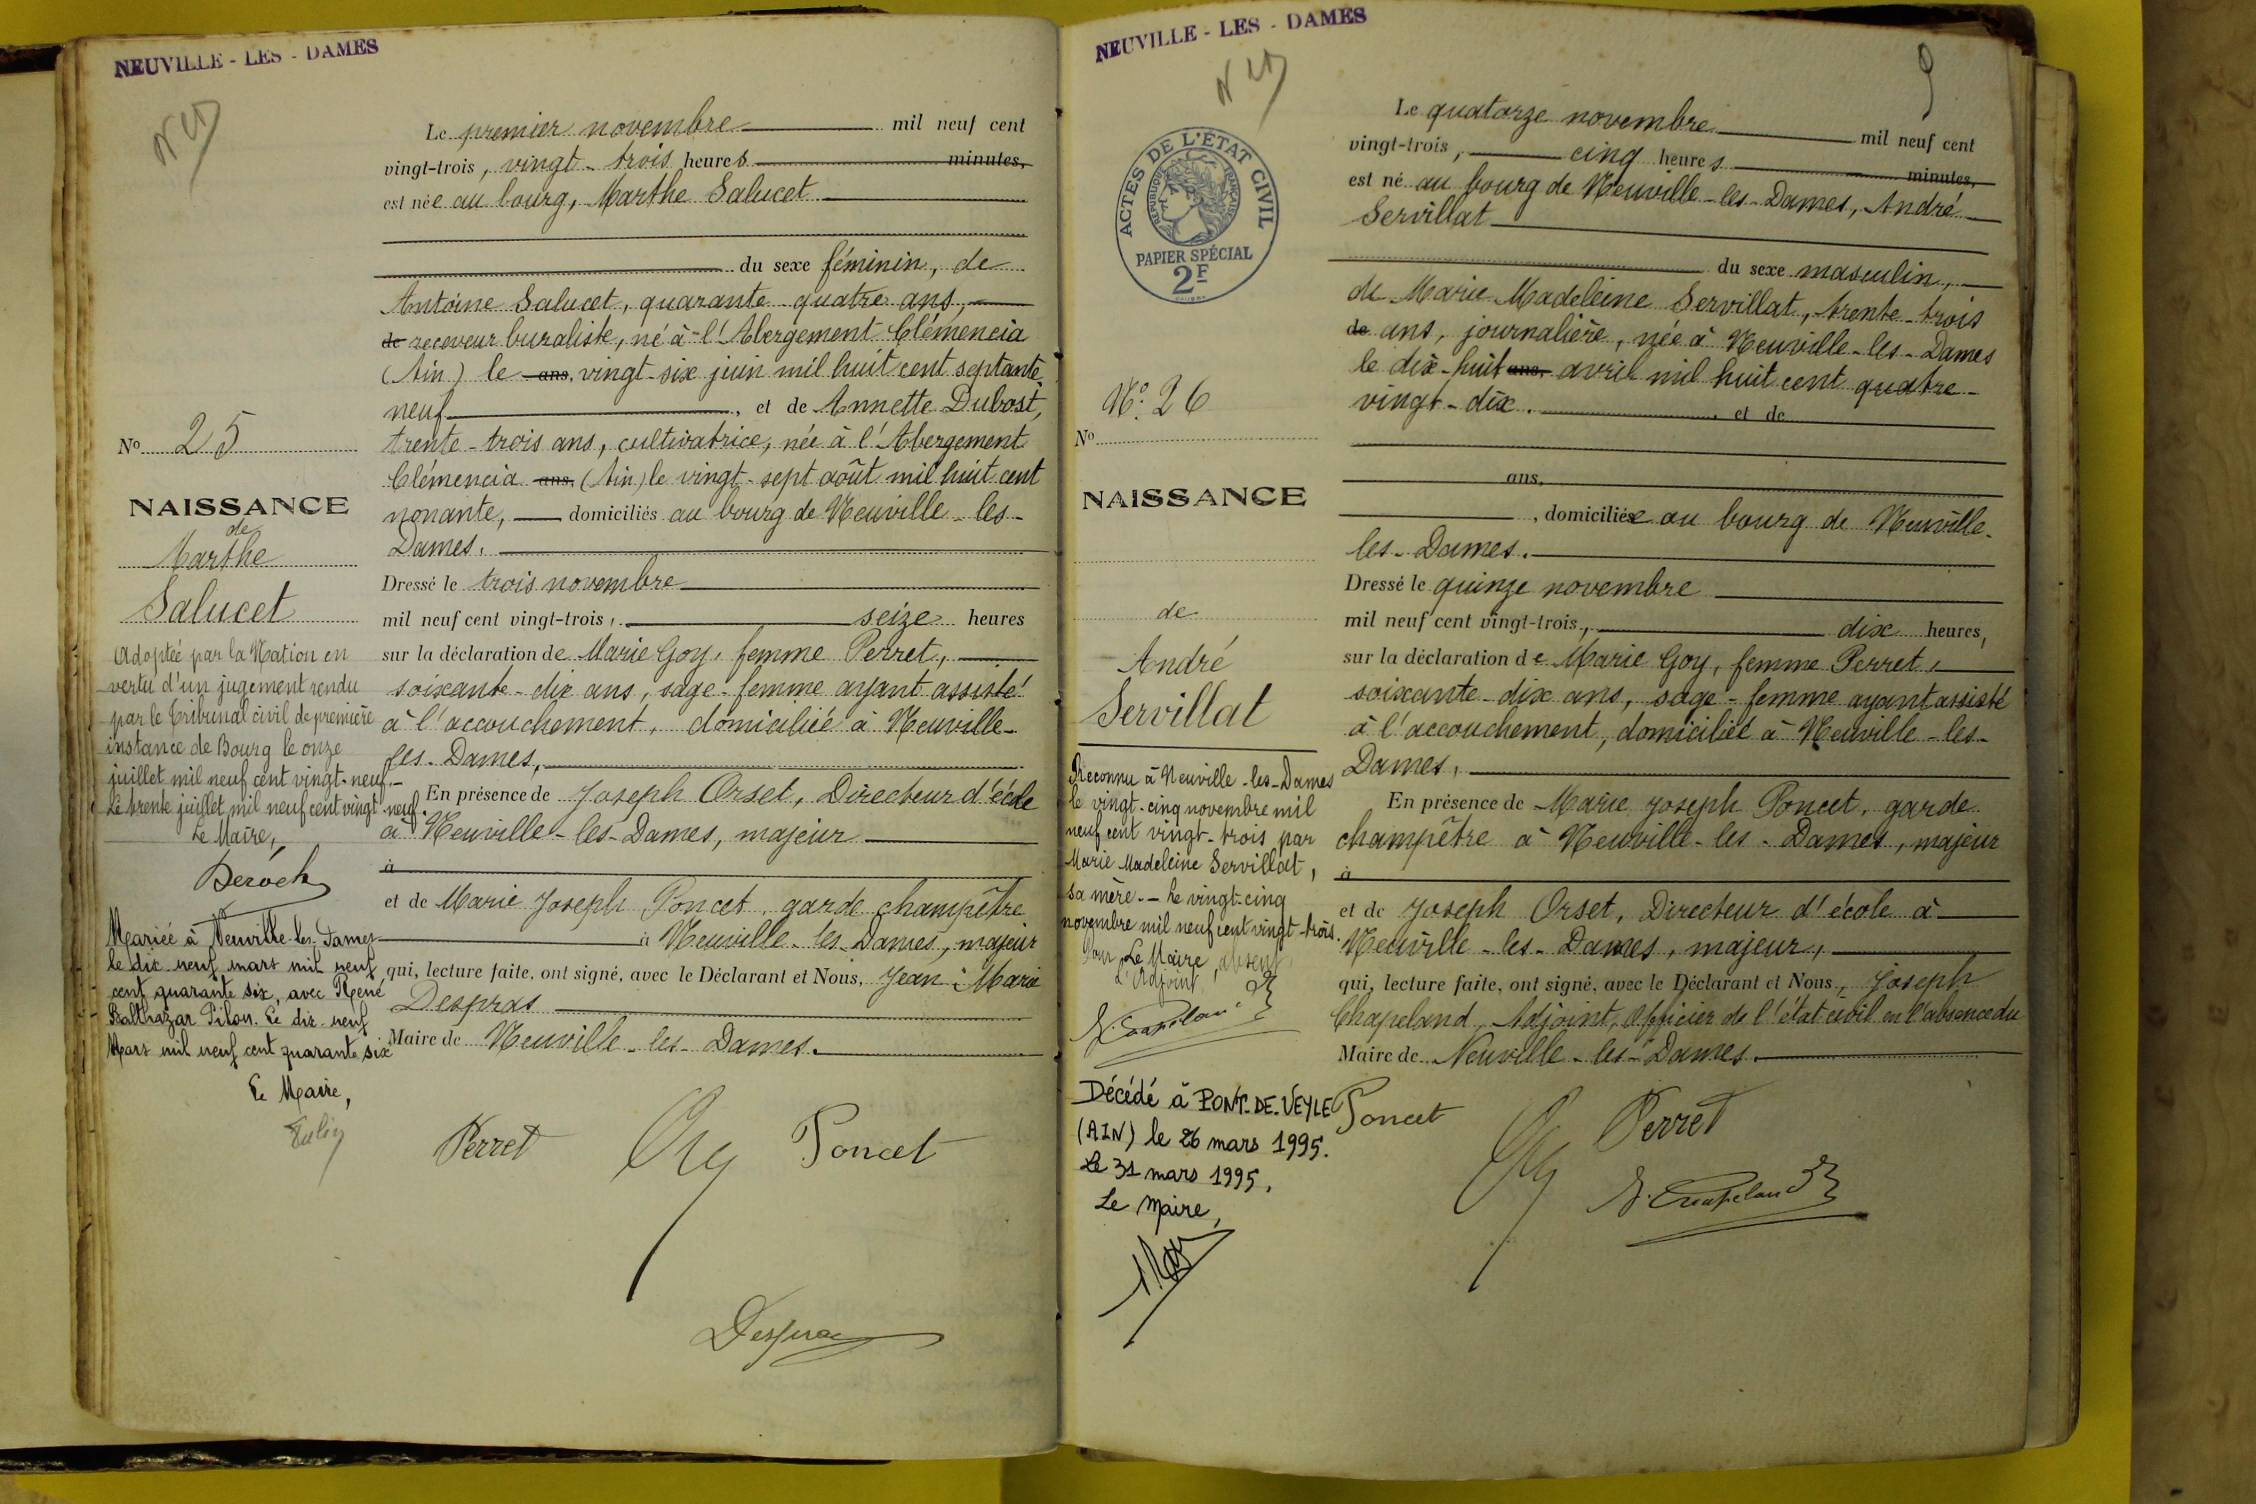 NEUVILLE - LES - DAMES
Le premier novembre mil neuf cent
vingt-trois, vingt-trois heures minutes,
est née au bourg, Marthe Salucet
du sexe féminin, de
Antoine Salucet, quarante quatre ans,
de receveur buraliste, né à l'Abergement Clémencia
(Ain) le ans, vingt-six juin mil huit cent septante
neuf, et de Annette Dubost,
trente-trois ans, cultivatrice, née à l'Abergement
Clémencia ans, (Ain) le vingt-sept août mil huit cent
nonante, domiciliés au bourg de Neuville-les-
Dames.
Dressé le trois novembre
mil neuf cent vingt-trois, seize heures
sur la déclaration de Marie Goy, femme Perret,
soixante-dix ans, sage-femme ayant assisté
à l'accouchement, domiciliée à Neuville-
les-Dames,
En présence de Joseph Orset, Directeur d'école
à Neuville-les-Dames, majeur
à
et de Marie Joseph Poncet, garde champêtre
à Neuville-les-Dames, majeur
qui, lecture faite, ont signé, avec le Déclarant et Nous, Jean-Marie
Despras
Maire de Neuville-les-Dames.
Perret Poncet
No 25
NAISSANCE
de
Marthe
Salucet
Adoptée par la Nation en
vertu d'un jugement rendu
par le Tribunal civil de première
instance de Bourg le onze
juillet mil neuf cent vingt-neuf.-
Le trente juillet mil neuf cent vingt-neuf.
Le Maire,
Mariée à Neuville-les-Dames
le dix neuf mars mil neuf
cent quarante six, avec René
Balthazar Pilon. Le dix neuf
Mars mil neuf cent quarante six
Le Maire,
NEUVILLE - LES - DAMES
9
ACTES DE L'ÉTAT CIVIL
RÉPUBLIQUE FRANÇAISE
PAPIER SPÉCIAL
2F
Le quatorze novembre mil neuf cent
vingt-trois, cinq heures minutes,
est né au bourg de Neuville-les-Dames, André
Servillat
du sexe masculin,
de Marie Madeleine Servillat, trente-trois
de ans, journalière, née à Neuville-les-Dames
le dix-huit ans, avril mil huit cent quatre-
vingt-dix. , et de
ans,
, domiciliée au bourg de Neuville-
les-Dames.
Dressé le quinze novembre
mil neuf cent vingt-trois, dix heures,
sur la déclaration de Marie Goy, femme Perret,
soixante-dix ans, sage-femme ayant assisté
à l'accouchement, domiciliée à Neuville-les-
Dames,
En présence de Marie Joseph Poncet, garde
champêtre à Neuville-les-Dames, majeur
à
et de Joseph Orset, Directeur d'école à
Neuville-les-Dames, majeur,
qui, lecture faite, ont signé, avec le Déclarant et Nous, Joseph
Chapeland, Adjoint, Officier de l'état civil en l'absence du
Maire de Neuville-les-Dames.
Poncet Perret
N° 26
No
NAISSANCE
de
André
Servillat
Reconnu à Neuville-les-Dames
le vingt-cinq novembre mil
neuf cent vingt-trois par
Marie Madeleine Servillat,
sa mère.- Le vingt-cinq
novembre mil neuf cent vingt-trois.
Pour Le Maire, absent,
L'Adjoint
Décédé à PONT-DE-VEYLE
(AIN) le 26 mars 1995.
Le 31 mars 1995,
Le Maire,